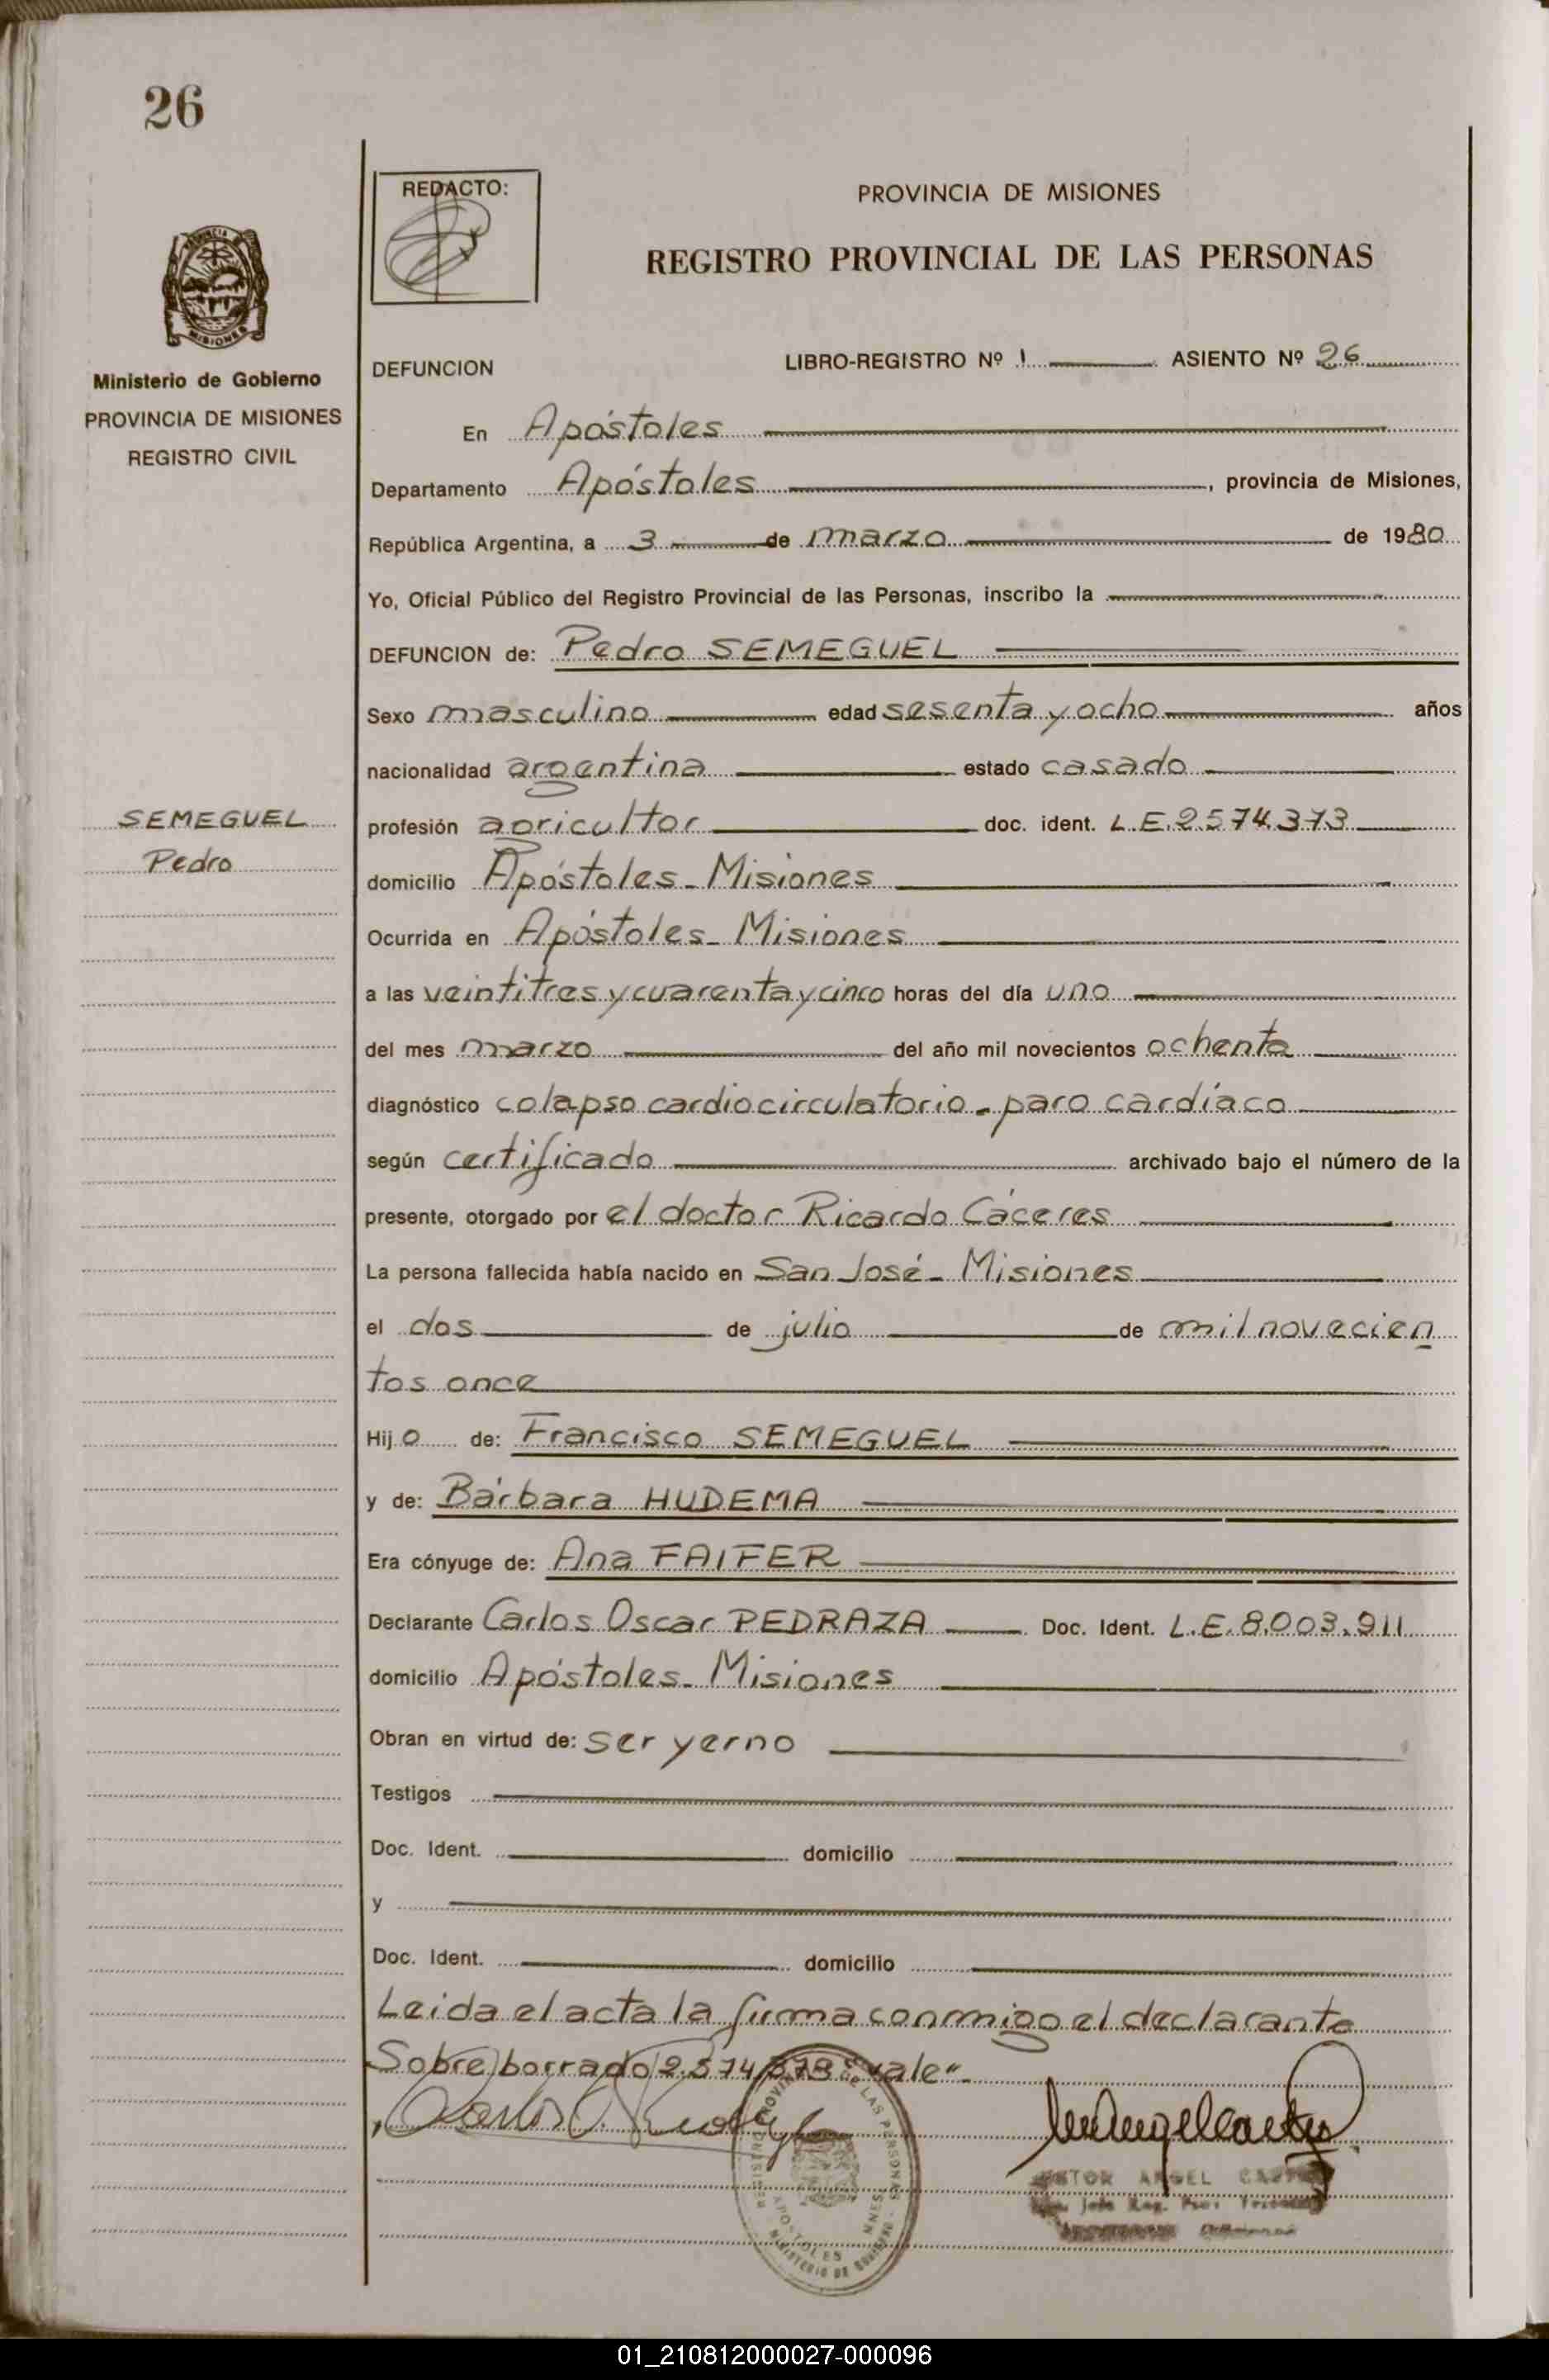 26
REDACTO:
PROVINCIA DE MISIONES
REGISTRO PROVINCIAL DE LAS PERSONAS
MISIONES
Ministerio de Gobierno
PROVINCIA DE MISIONES
REGISTRO CIVIL
DEFUNCION LIBRO-REGISTRO Nº 1 ASIENTO Nº 26
En Apóstoles
Departamento Apóstoles, provincia de Misiones,
República Argentina, a 3 de marzo de 1980
Yo, Oficial Público del Registro Provincial de las Personas, inscribo la
DEFUNCION de: Pedro SEMEGUEL
Sexo masculino edad sesenta y ocho años
nacionalidad argentina estado casado
SEMEGUEL
Pedro
profesión agricultor doc. ident. L.E.2.574.373
domicilio Apóstoles - Misiones
Ocurrida en Apóstoles - Misiones
a las veintitres y cuarenta y cinco horas del día uno
del mes marzo del año mil novecientos ochenta
diagnóstico colapso cardiocirculatorio - paro cardíaco
según certificado archivado bajo el número de la
presente, otorgado por el doctor Ricardo Cáceres
La persona fallecida había nacido en San José - Misiones
el dos de julio de mil novecien
tos once
Hijo de: Francisco SEMEGUEL
y de: Bárbara HUDEMA
Era cónyuge de: Ana FAIFER
Declarante Carlos Oscar PEDRAZA Doc. Ident. L.E. 8.003.911
domicilio Apóstoles - Misiones
Obran en virtud de: ser yerno
Testigos
Doc. Ident. domicilio
y
Doc. Ident. domicilio
Leida el acta la firma conmigo el declarante
Sobre borrado 2.574.373 "vale".
ANGEL
APOSTOLES
01_210812000027-000096